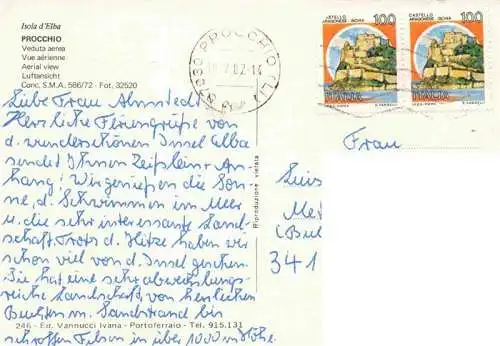 Isola d'Elba
PROCCHIO
Veduta aerea
Vue aérienne
Aerial view
Luftansicht
Conc. S.M.A. 586/72 - Fot. 32520
PROCCHIO (LI)
CASTELLO
ARAGONESE ISCHIA
100
ITALIA
CASTELLO
ARAGONESE ISCHIA
100
ITALIA
Liebe Frau Almstedt
Herzliche Feriengrüße von
d. wunderschönen Insel Elba
sendet Ihnen Zeißlein + An-
hang! Wir genießen die Son-
ne, d. Schwimmen im Meer
u. die sehr interessante Land-
schaft. Trotz d. Hitze haben wir
schon viel von d. Insel gesehen.
Sie hat eine sehr abwechslungs-
reiche Landschaft, von herrlichen
Buchten m. Sandstrand bis
schroffen Felsen in über 1000 m Höhe.
Frau
Luis
341
Riproduzione vietata
246 - Ed. Vannucci Ivana - Portoferraio - Tel. 915.131